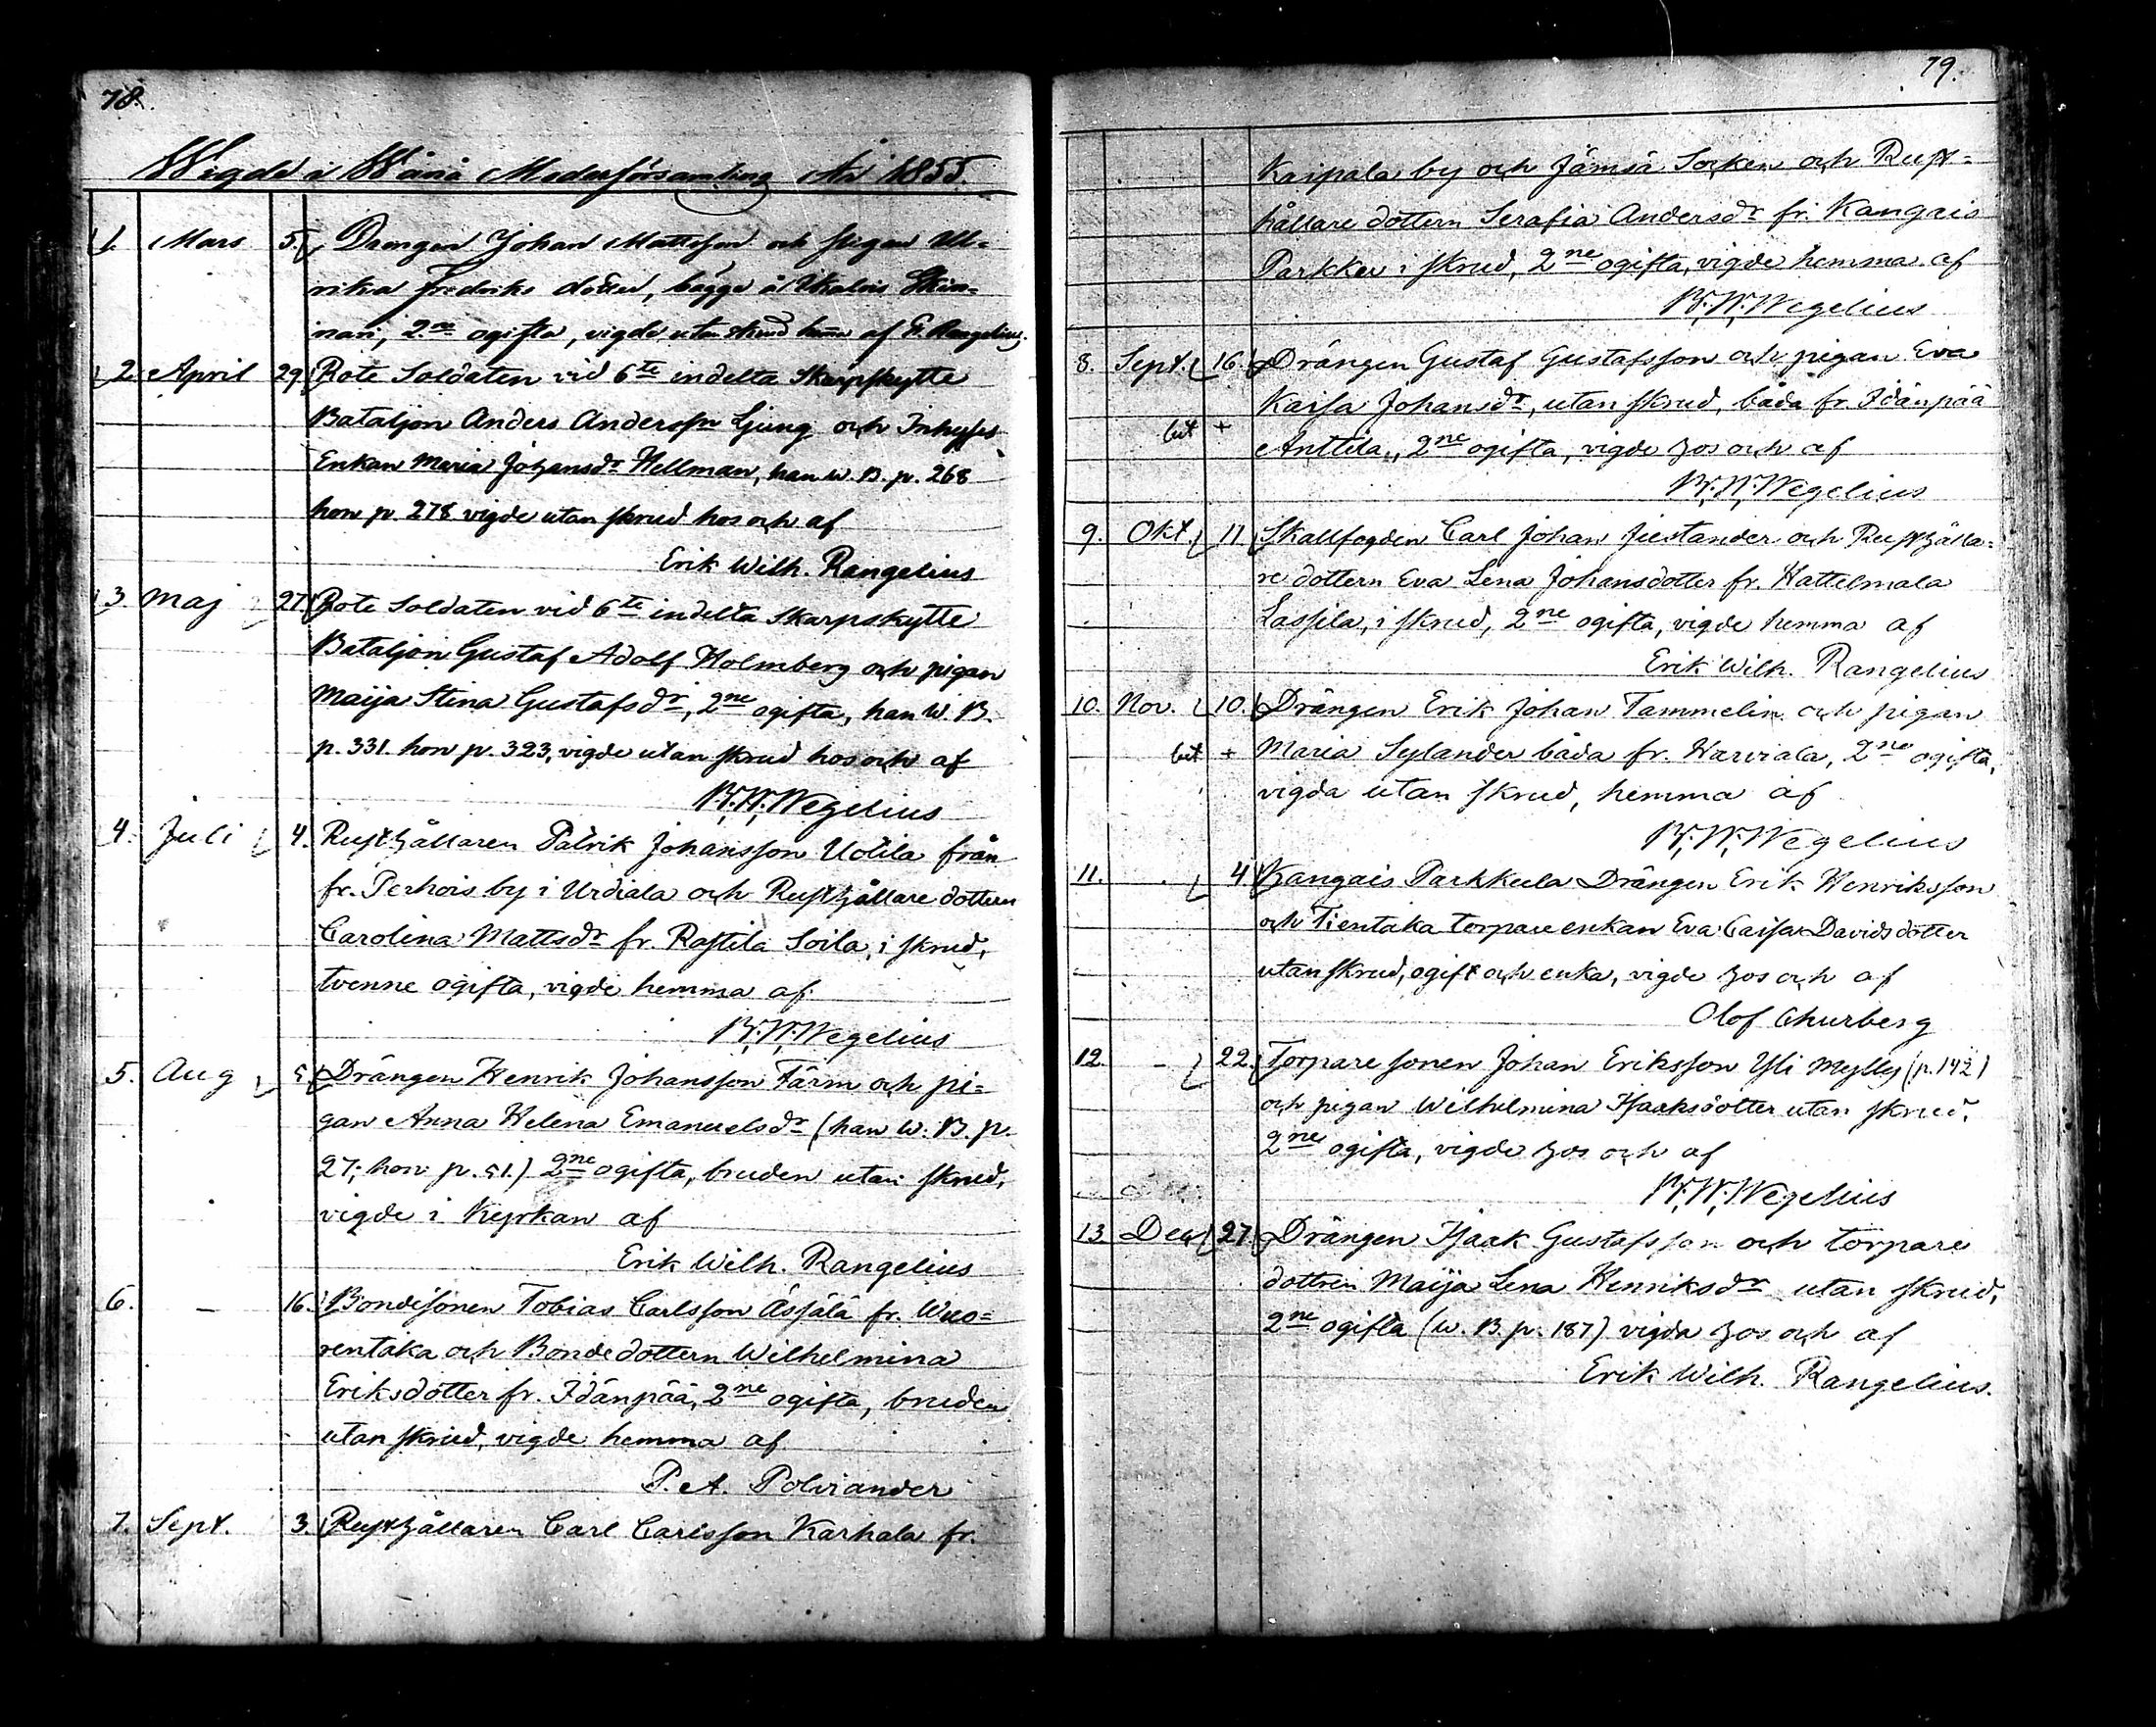 78.
Wigde i Wånå Moderförsamling År 1855.
1. Mars 5. Drängen Johan Mattsson och pigan Ul-
rika Fredriks dotter, bägge å Ikalois
nari, 2ne ogifta, vigde utan skrud hemma af E. Rangelius.
2. April 29. Rote Soldaten vid 6te indelta Skarpskytte
Bataljon Anders Andersson Ljung och Inhyses
Enkan Maria Johansdr Hellman, han w. B. p. 268
hon p. 278 vigde utan skrud hos och af
Erik Wilh. Rangelius
3. Maj 27. Rote Soldaten vid 6te indelta Skarpskytte
Bataljon Gustaf Adolf Holmberg och pigan
Maija Stina Gustafsdr, 2ne ogifta, han W. B.
p. 331. hon p. 323, vigde utan skrud hos och af
B. W. Wegelius
4. Juli 4. Rusthållaren Patrik Johansson Uotila från
fr. Perhois by i Urdiala och Rusthållare dottern
Carolina Mattsdr fr. Rastila Soila, i skrud,
tvenne ogifta, vigde hemma af
B. W. Wegelius
5. Aug 5. Drängen Henrik Johansson Färm och pi-
gan Anna Helena Emanuelsdr (han w. B. p.
27; hon p. 51.) 2ne ogifta, bruden utan skrud,
vigde i Kyrkan af
Erik Wilh. Rangelius
6. - 16. Bondesonen Tobias Carlsson Ässälä fr. Wuo-
rentaka och Bonde dottern Wilhelmina
Eriksdotter fr. Idänpää, 2ne ogifta, bruden
utan skrud, vigde hemma af
P. A. Polviander
7. Sept. 3. Rusthållaren Carl Carlsson Karhala fr.
79.
Kaipala by och Jämsä Socken och Rust-
hållare dottern Serafia Andersdr fr. Kangais
Parkku i skrud, 2ne ogifta, vigde hemma af
B. W. Wegelius
8. Sept. 16. Drängen Gustaf Gustafsson och pigan Eva
Kaisa Johansdr, utan skrud, båda fr. Idänpää
bet + Anttila, 2ne ogifta, vigde hos och af
B. W. Wegelius
9. Okt. 11. Skallfogden Carl Johan Justander och Rusthålla-
re dottern Eva Lena Johansdotter fr. Hattelmala
Lassila, i skrud, 2ne ogifta, vigde hemma af
Erik Wilh. Rangelius
10. Nov. 10. Drängen Erik Johan Tammelin och pigan
bet + Maria Sylander båda fr. Harviala, 2ne ogifta,
vigda utan skrud, hemma af
B. W. Wegelius
11. . 4. Kangais Parkkula Drängen Erik Henriksson
och Tientaka torpare enkan Eva Caisa Davidsdotter
utan skrud, ogift och enka, vigde hos och af
Olof Churberg
12. - 22. Torpare sonen Johan Eriksson Yli Mylly (p. 142)
och pigan Wilhelmina Isaksdotter utan skrud,
2ne ogifta, vigde hos och af
B. W. Wegelius
13. Dec. 27. Drängen Isaak Gustafsson och torpare
dottren Maija Lena Henriksdr utan skrud,
2ne ogifta (w. B. p. 187) vigda hos och af
Erik Wilh. Rangelius.